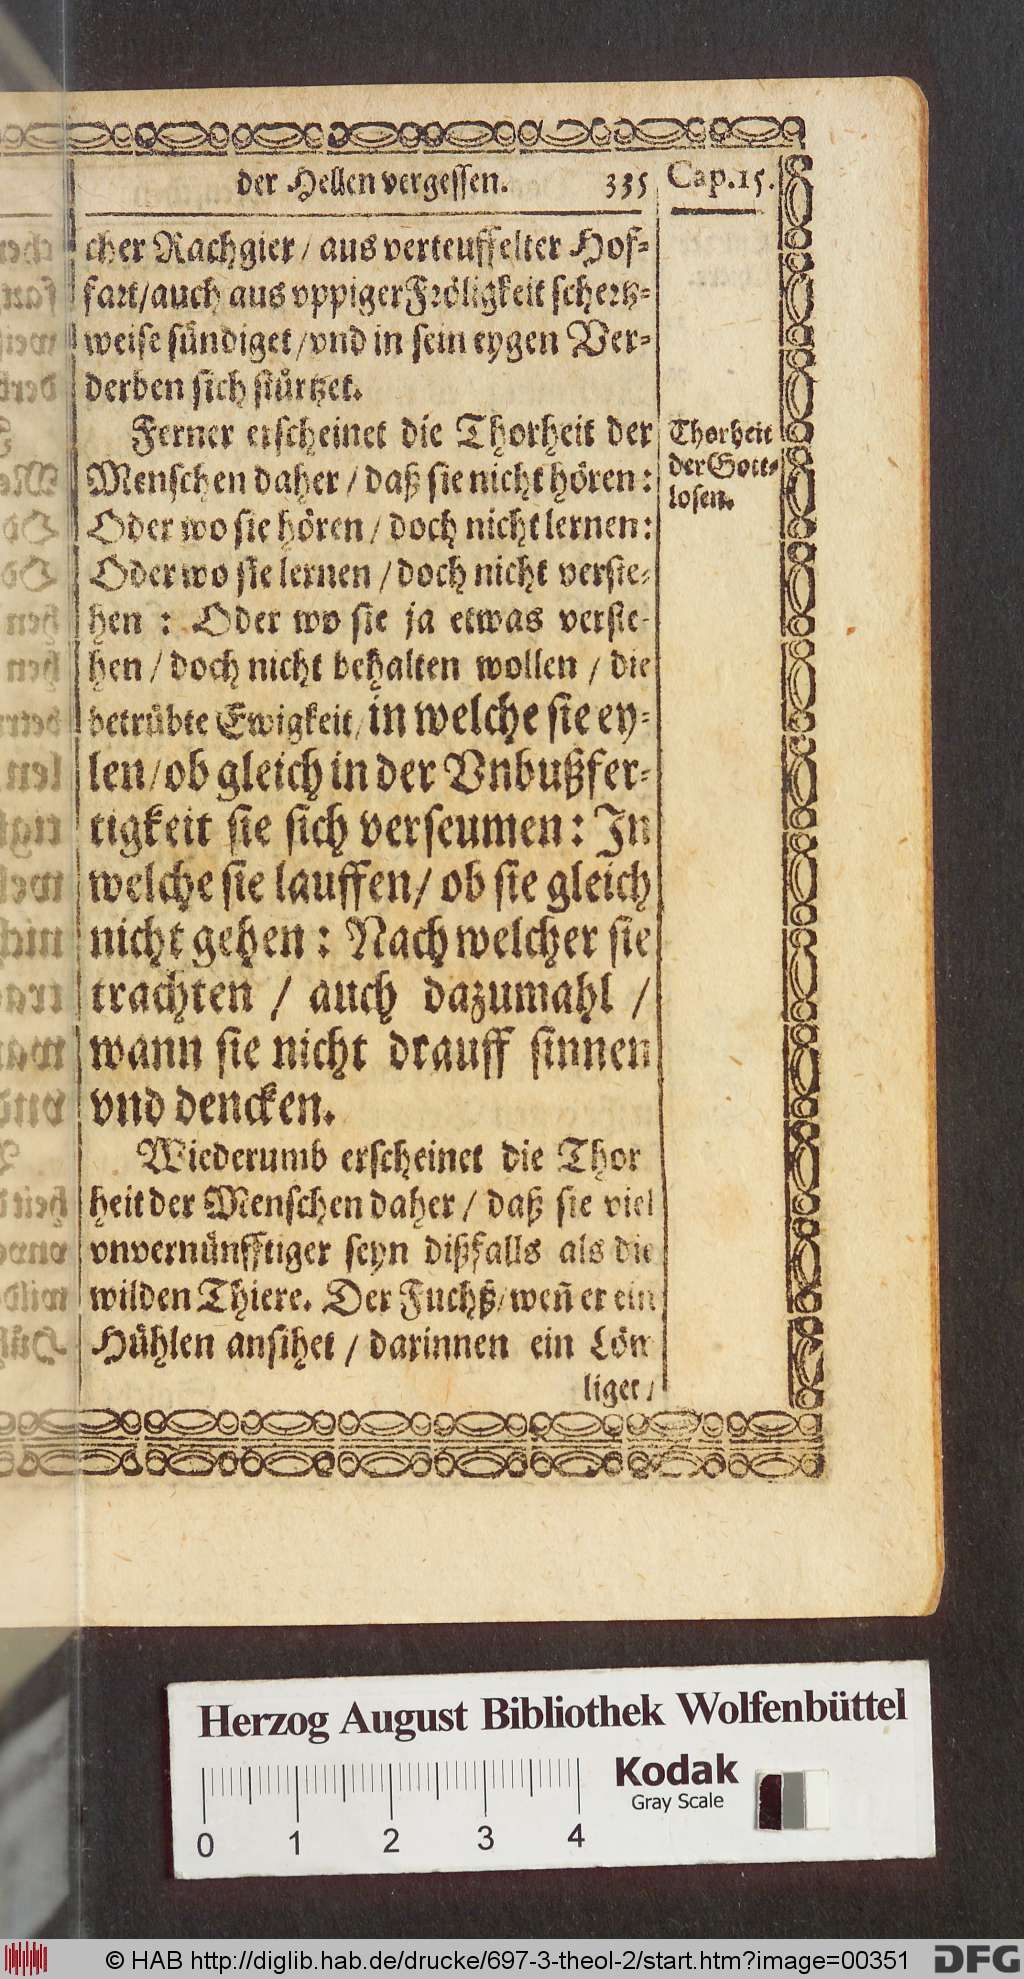 der Hellen vergessen. 335 Cap.15.
cher Rachgier / aus verteuffelter Hof-
fart/auch aus vppiger Fröligkeit schertz-
weise sündiget/vnd in sein eygen Ver-
derben sich stürtzet.
Ferner erscheinet die Thorheit der
Menschen daher / daß sie nicht hören:
Oder wo sie hören / doch nicht lernen:
Oder wo sie lernen / doch nicht verste-
hen : Oder wo sie ja etwas verste-
hen / doch nicht behalten wollen / die
betrübte Ewigkeit/in welche sie ey-
len/ob gleich in der Vnbußfer-
tigkeit sie sich verseumen: In
welche sie lauffen/ ob sie gleich
nicht gehen : Nach welcher sie
trachten / auch dazumahl /
wann sie nicht drauff sinnen
vnd dencken.
Wiederumb erscheinet die Thor
heit der Menschen daher / daß sie viel
vnvernünfftiger seyn dißfalls als die
wilden Thiere. Der Fuchß/weñ er ein
Hühlen ansihet / darinnen ein Löw
liget /
Thorheit
der Gott-
losen.
Herzog August Bibliothek Wolfenbüttel
Kodak
Gray Scale
0 1 2 3 4
© HAB http://diglib.hab.de/drucke/697-3-theol-2/start.htm?image=00351
DFG